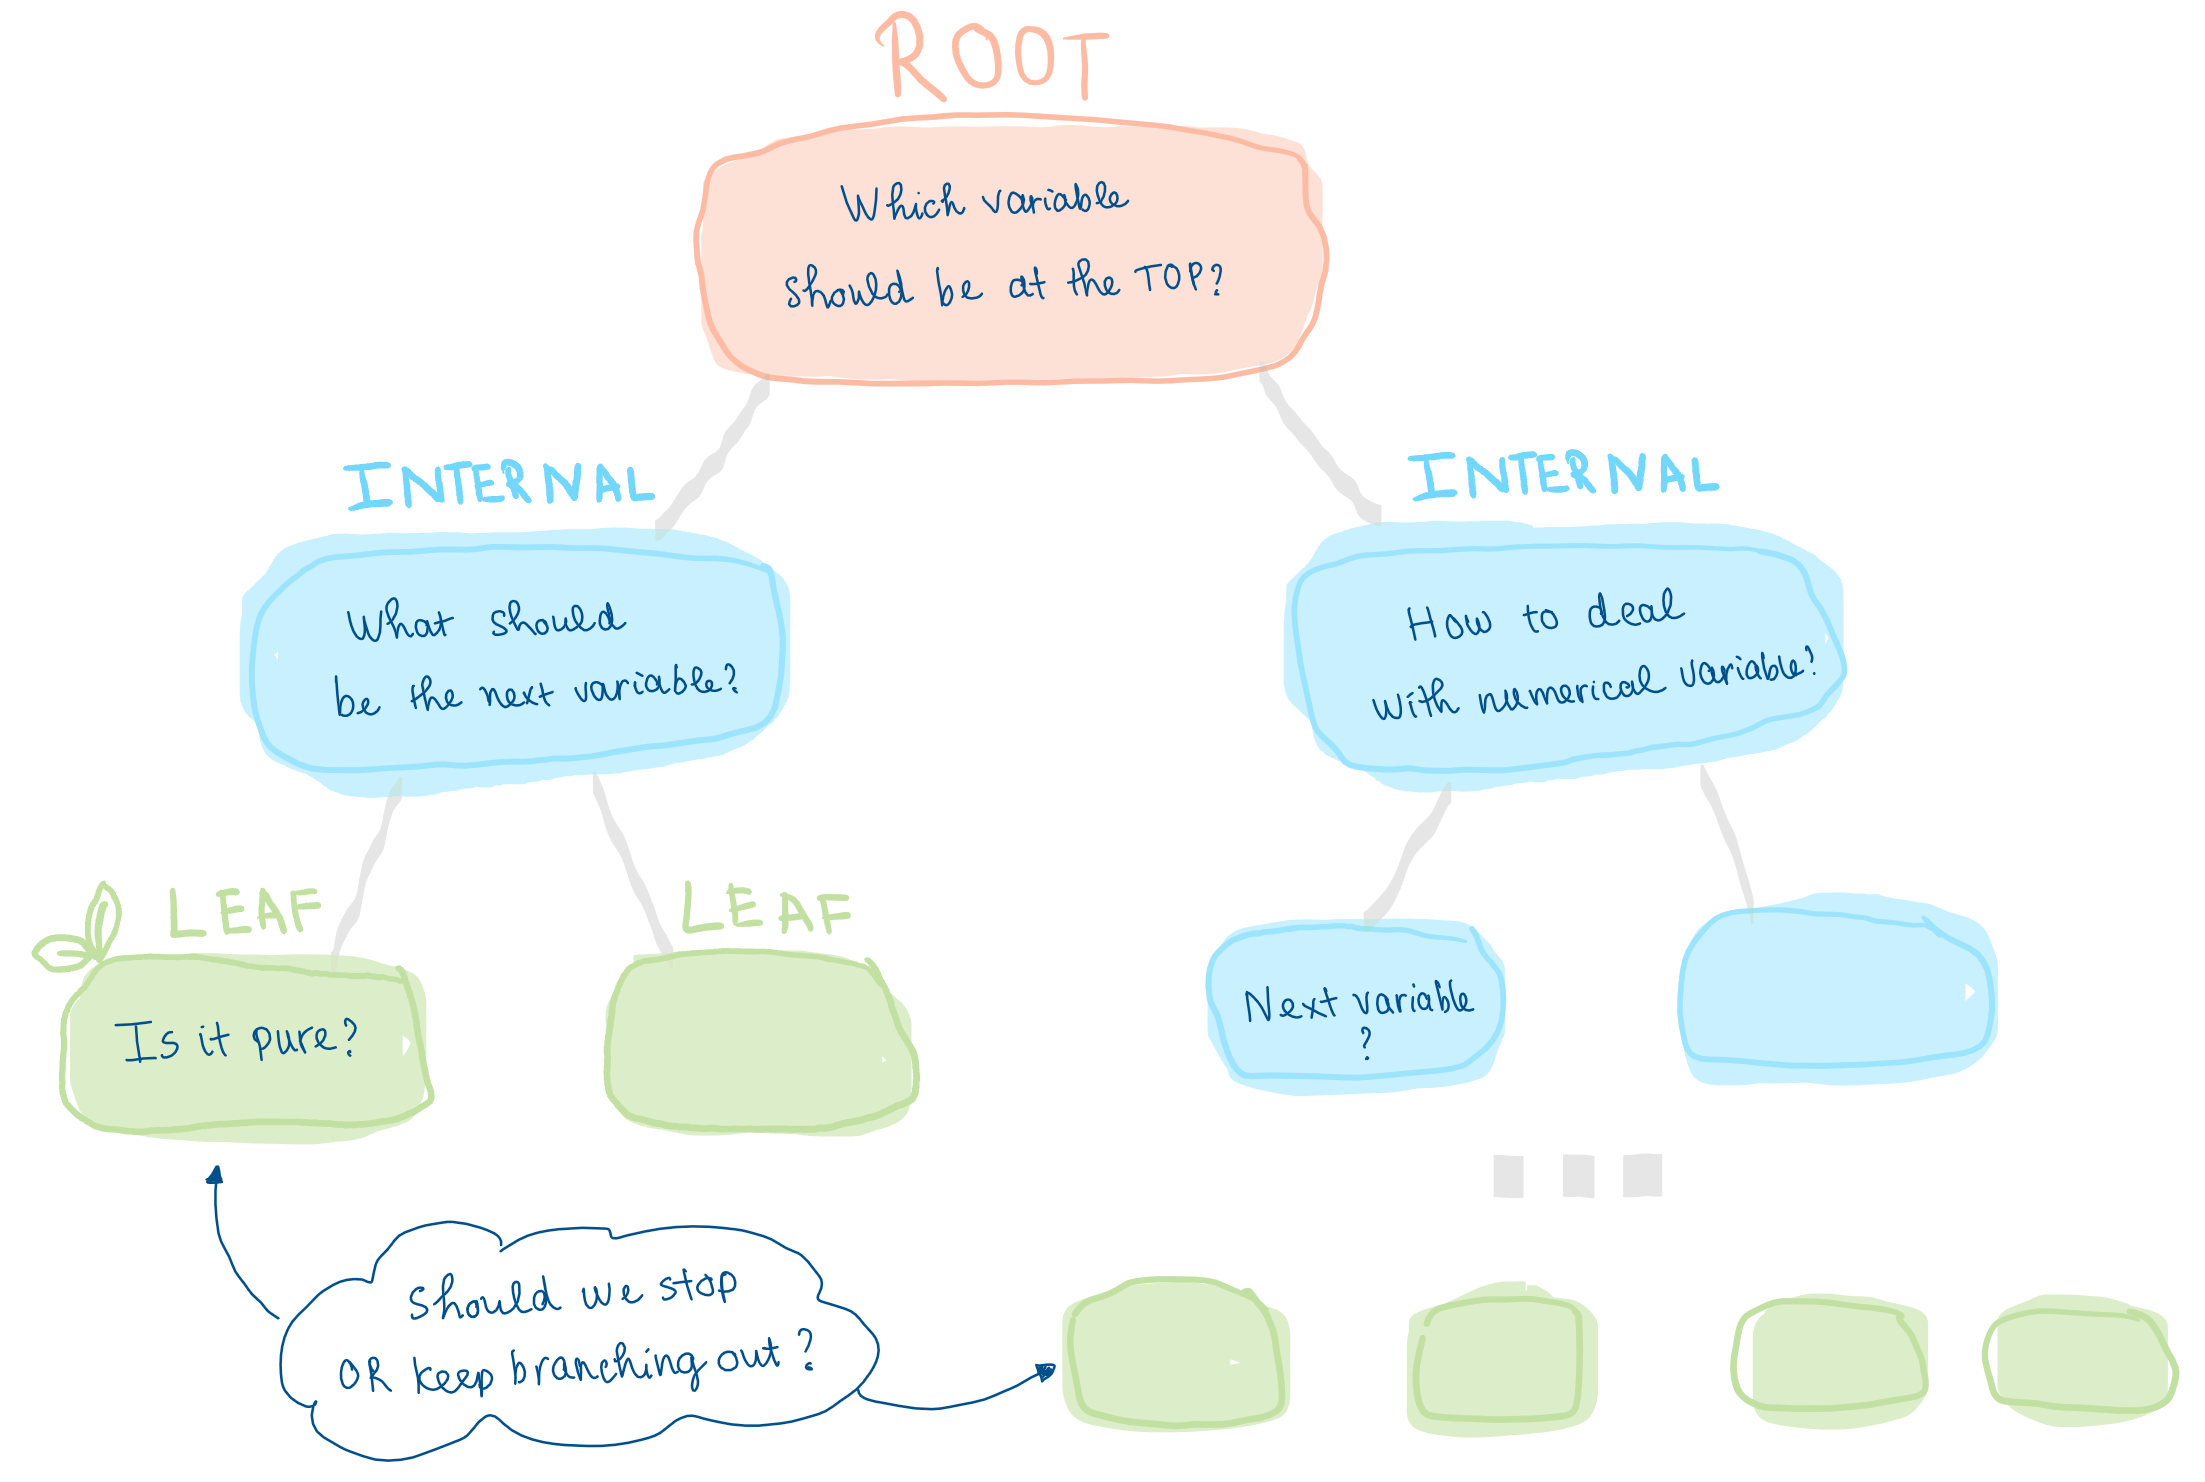 ROOT
Which variable
should be at the TOP?
INTERNAL
INTERNAL
What should
be the next variable?
How to deal
with numerical variable?
LEAF
LEAF
Is it pure?
Next variable
?
Should we stop
OR keep branching out?